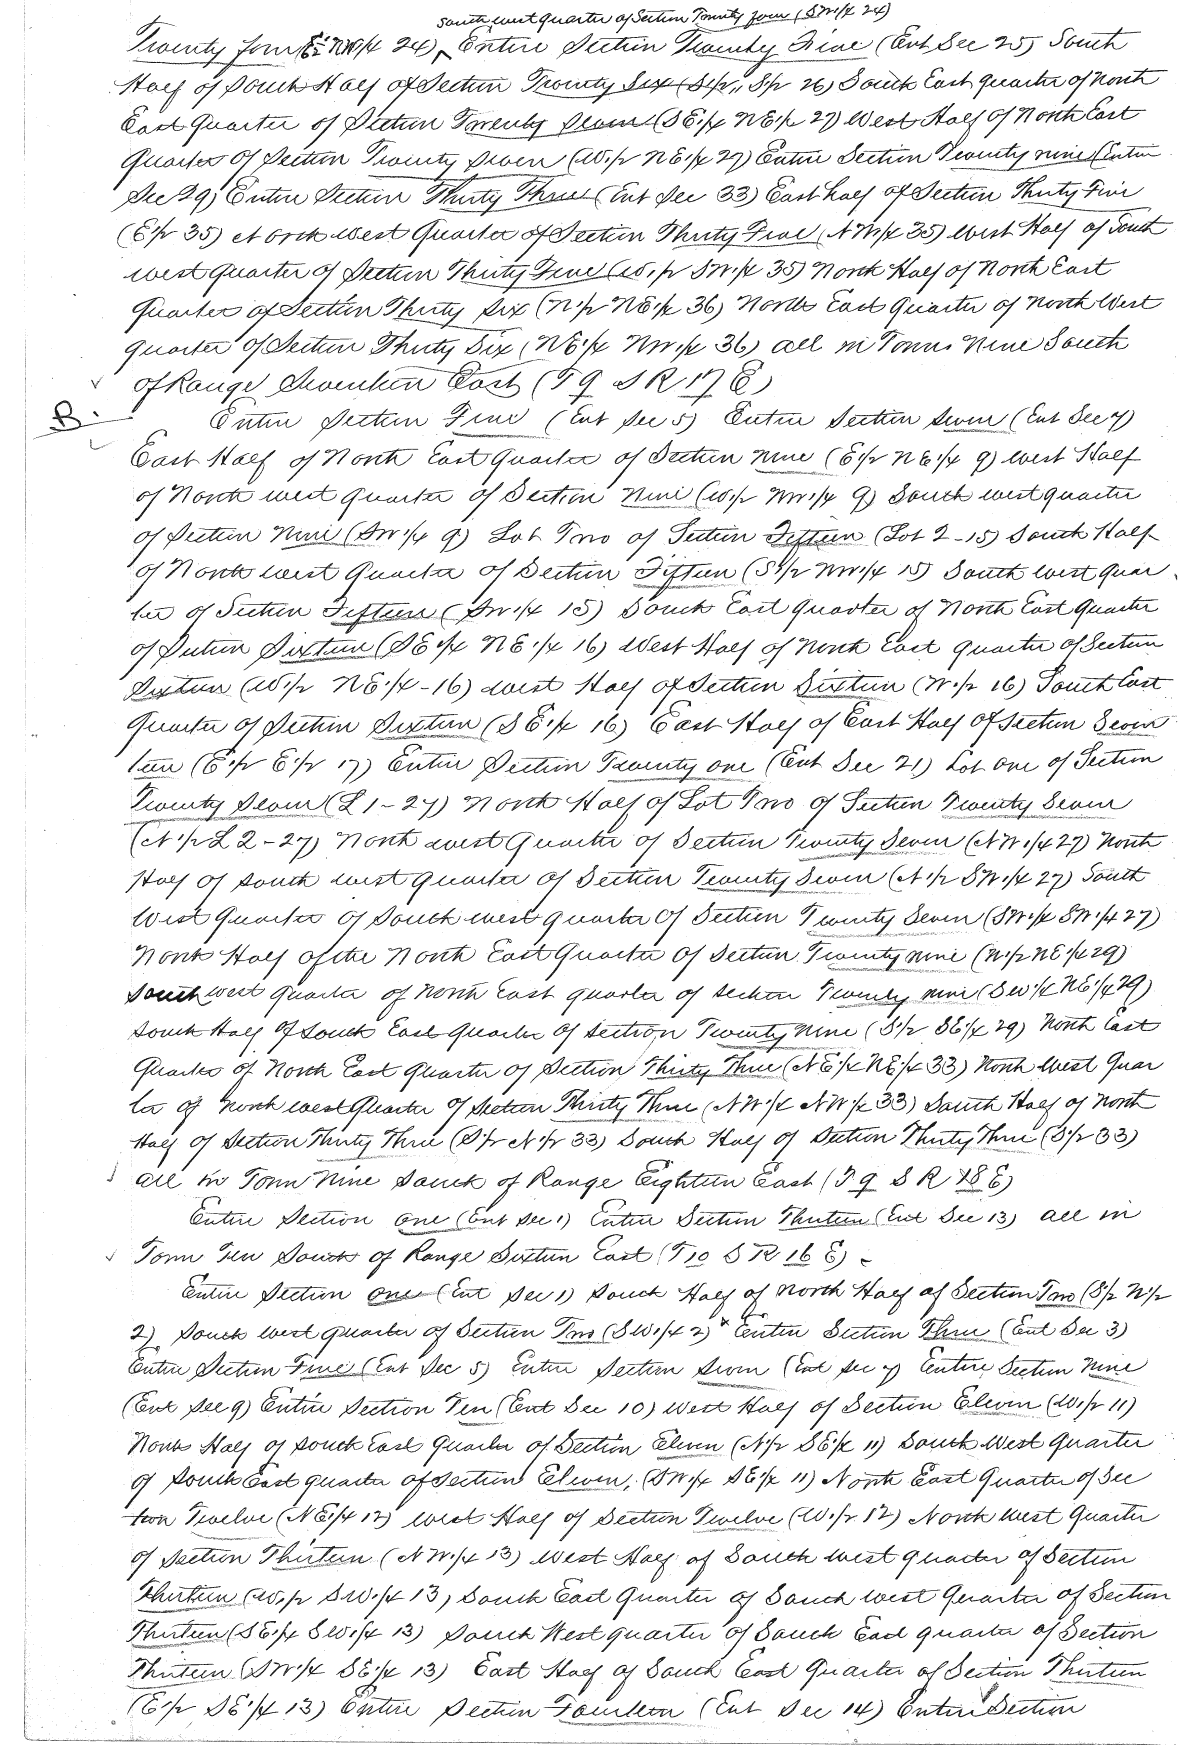 South west quarter of Section Twenty four (SW 1/4 24)
Twenty four (E 1/2 NW 1/4 24) Entire Section Twenty Five (Ent Sec 25) South
Half of South Half of Section Twenty Six (S 1/2 S 1/2 26) South East quarter of North
East Quarter of Section Twenty Seven (SE 1/4 NE 1/4 27) West Half of North East
Quarter of Section Twenty Seven (W 1/2 NE 1/4 27) Entire Section Twenty nine (Entire
Sec 29) Entire Section Thirty Three (Ent Sec 33) East half of Section Thirty Five
(E 1/2 35) North west Quarter of Section Thirty Five (NW 1/4 35) West Half of South
west quarter of Section Thirty Five (W 1/2 SW 1/4 35) North Half of North East
Quarter of Section Thirty Six (N 1/2 NE 1/4 36) North East Quarter of North West
quarter of Section Thirty Six (NE 1/4 NW 1/4 36) all in Town Nine South
of Range Seventeen East (T 9 S R 17 E)
B. Entire Section Five (Ent Sec 5) Entire Section Seven (Ent Sec 7)
East Half of North East Quarter of Section Nine (E 1/2 NE 1/4 9) West Half
of North west quarter of Section Nine (W 1/2 NW 1/4 9) South west quarter
of Section Nine (SW 1/4 9) Lot Two of Section Fifteen (Lot 2 - 15) South Half
of North west Quarter of Section Fifteen (S 1/2 NW 1/4 15) South West Quar
ter of Section Fifteen (SW 1/4 15) South East Quarter of North East Quarter
of Section Sixteen (SE 1/4 NE 1/4 16) West Half of North East quarter of Section
Sixteen (W 1/2 NE 1/4 - 16) West Half of Section Sixteen (W 1/2 16) South East
Quarter of Section Sixteen (SE 1/4 16) East Half of East Half of Section Seven
teen (E 1/2 E 1/2 17) Entire Section Twenty one (Ent Sec 21) Lot one of Section
Twenty Seven (L 1 - 27) North Half of Lot Two of Section Twenty Seven
(N 1/2 L 2 - 27) North west Quarter of Section Twenty Seven (NW 1/4 27) North
Half of South west quarter of Section Twenty Seven (N 1/2 SW 1/4 27) South
West Quarter of South west quarter of Section Twenty Seven (SW 1/4 SW 1/4 27)
North Half of the North East Quarter of Section Twenty nine (N 1/2 NE 1/4 29)
South west quarter of North East quarter of section Twenty nine (SW 1/4 NE 1/4 29)
South Half of South East Quarter of Section Twenty Nine (S 1/2 SE 1/4 29) North East
Quarter of North East Quarter of Section Thirty Three (NE 1/4 NE 1/4 33) North West Quar
ter of North west Quarter of Section Thirty Three (NW 1/4 NW 1/4 33) South Half of North
Half of Section Thirty Three (S 1/2 N 1/2 33) South Half of Section Thirty Three (S 1/2 33)
all in Town Nine South of Range Eighteen East (T 9 S R 18 E)
Entire Section one (Ent Sec 1) Entire Section Thirteen (Ent Sec 13) all in
Town Ten South of Range Sixteen East (T 10 S R 16 E) -
Entire Section one (Ent Sec 1) South Half of North Half of Section Two (S 1/2 N 1/2
2) South west quarter of Section Two (SW 1/4 2) x Entire Section Three (Ent Sec 3)
Entire Section Five (Ent Sec 5) Entire Section Seven (Ent Sec 7) Entire Section Nine
(Ent Sec 9) Entire Section Ten (Ent Sec 10) West Half of Section Eleven (W 1/2 11)
North Half of South East Quarter of Section Eleven (N 1/2 SE 1/4 11) South West Quarter
of South East quarter of Section Eleven, (SW 1/4 SE 1/4 11) North East Quarter of Sec
tion Twelve (NE 1/4 12) West Half of Section Twelve (W 1/2 12) North West Quarter
of Section Thirteen (NW 1/4 13) West Half of South west quarter of Section
Thirteen (W 1/2 SW 1/4 13) South East Quarter of South west Quarter of Section
Thirteen (SE 1/4 SW 1/4 13) South West quarter of South East quarter of Section
Thirteen (SW 1/4 SE 1/4 13) East Half of South East Quarter of Section Thirteen
(E 1/2 SE 1/4 13) Entire Section Fourteen (Ent Sec 14) Entire Section